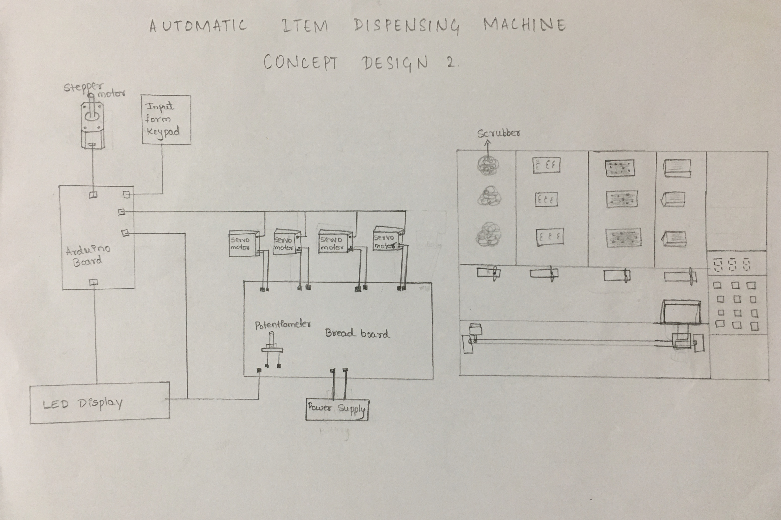 AUTOMATIC ITEM DISPENSING MACHINE
CONCEPT DESIGN 2.
Stepper
motor
Input
form
Keypad
Scrubber
Arduino
Board
Servo
motor
Servo
motor
Servo
motor
Servo
motor
Potentiometer
Bread board
LED Display
Power Supply